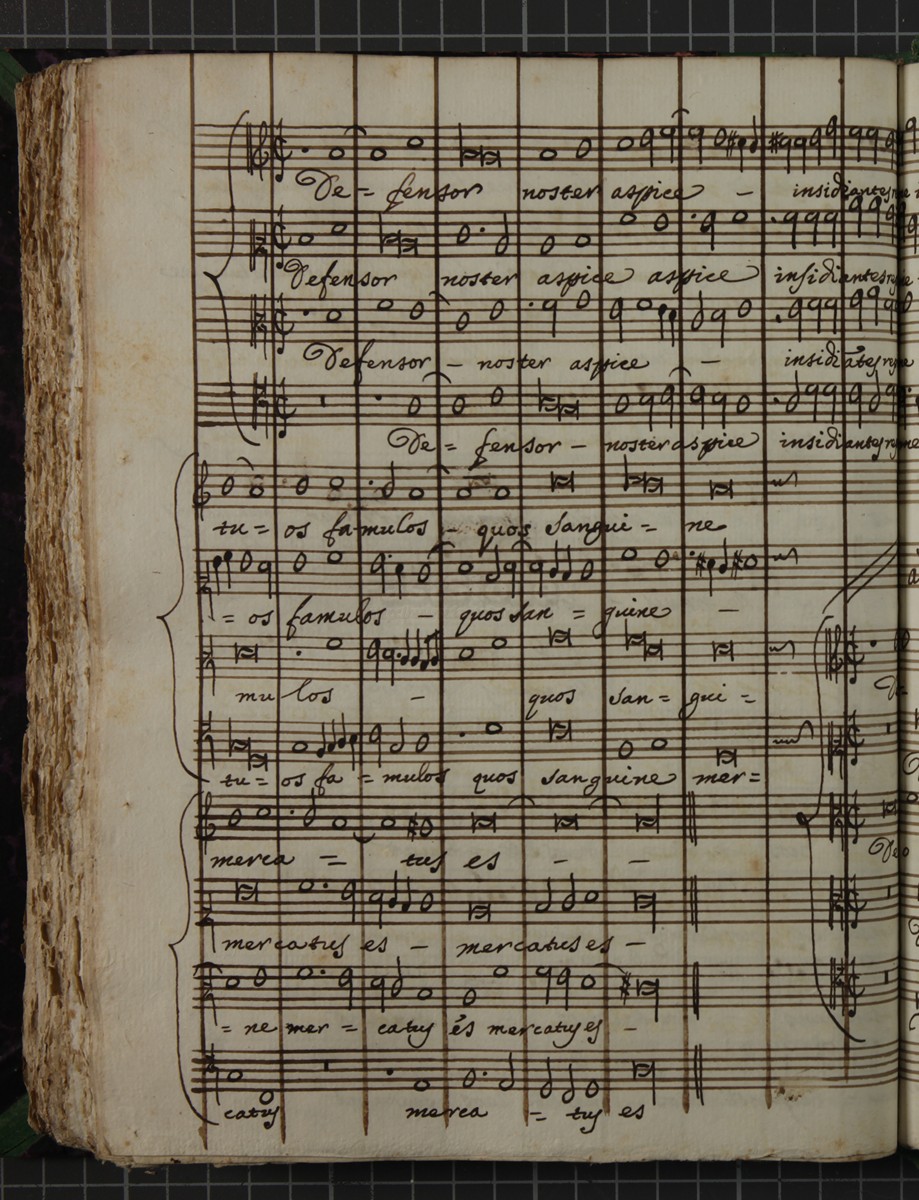 De = fensor noster aspice - insidiantes
Defensor noster aspice aspice insidiantes
Defensor - noster aspice - insidiātes
De = fensor - noster aspice insidiantes
tu = os famulos - quos Sangui = ne
= os famulos - quos San = guine -
mu los - quos San = gui =
tu = os fa = mulos quos Sanguine mer =
merca = tus es - -
mercatus es - mercatus es -
= ne mer = catus es mercatus es -
catus merca = tus es